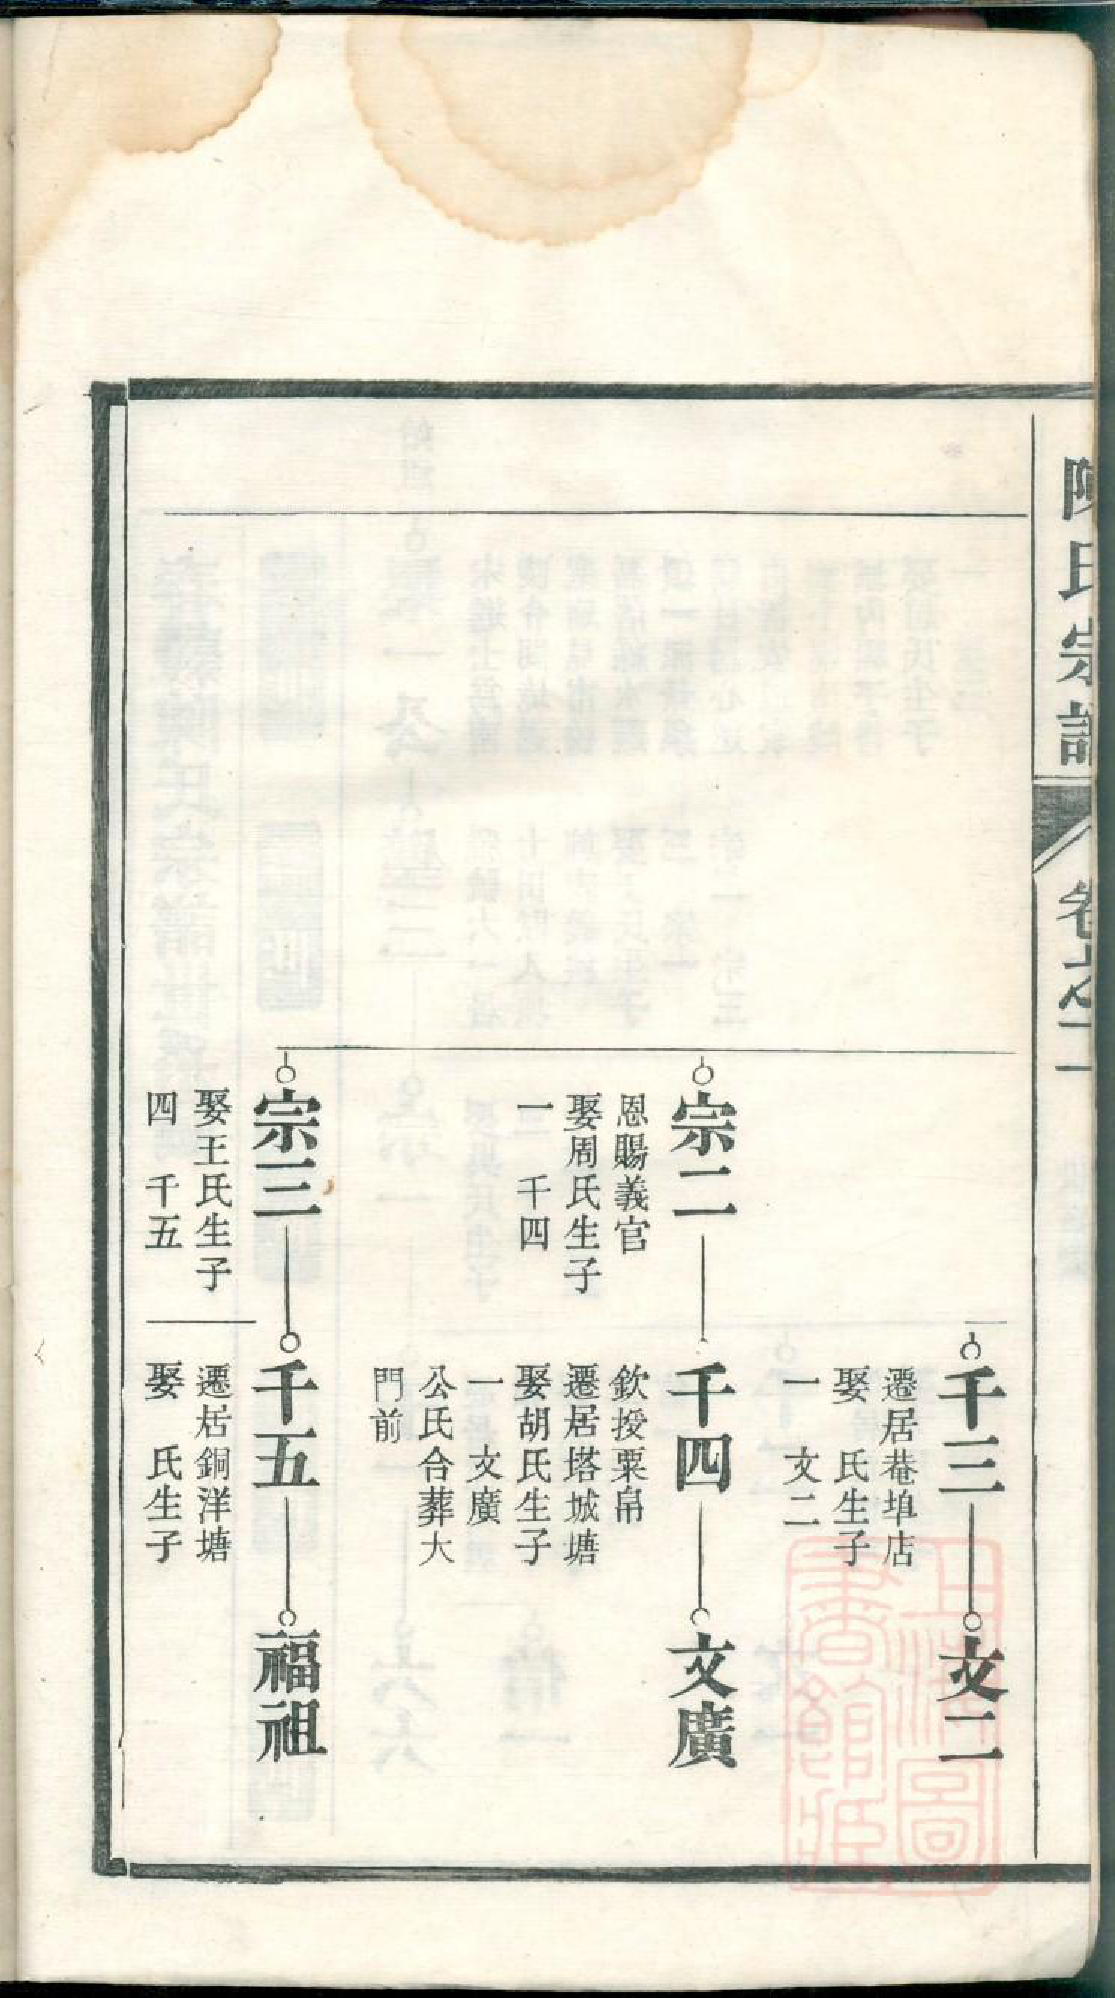 陳氏宗譜
卷之一
千三
遷居巷埠店
娶　氏生子
一　文二
文二
宗二
恩賜義官
娶周氏生子
一二　千四
千四
欽授粟帛
遷居塔城塘
娶胡氏生子
一　文廣
公氏合葬大
門前
文廣
宗三
娶王氏生子
四　千五
千五
遷居銅洋塘
娶　氏生子
福祖
上海圖書館藏